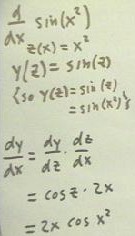 d/dx sin(x²)
z(x) = x²
y(z) = sin(z)
{so y(z) = sin(z)
= sin(x²)}
dy/dx = dy/dz · dz/dx
= cos z · 2x
= 2x cos x²